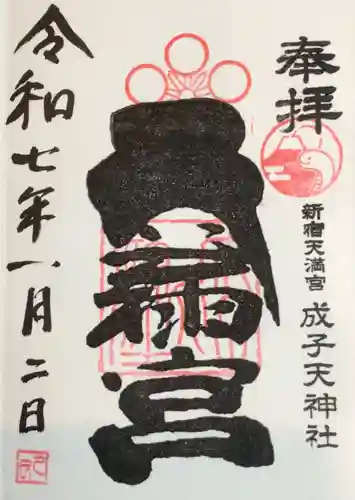 奉拝
新宿天満宮 成子天神社
天満宮
令和七年一月二日